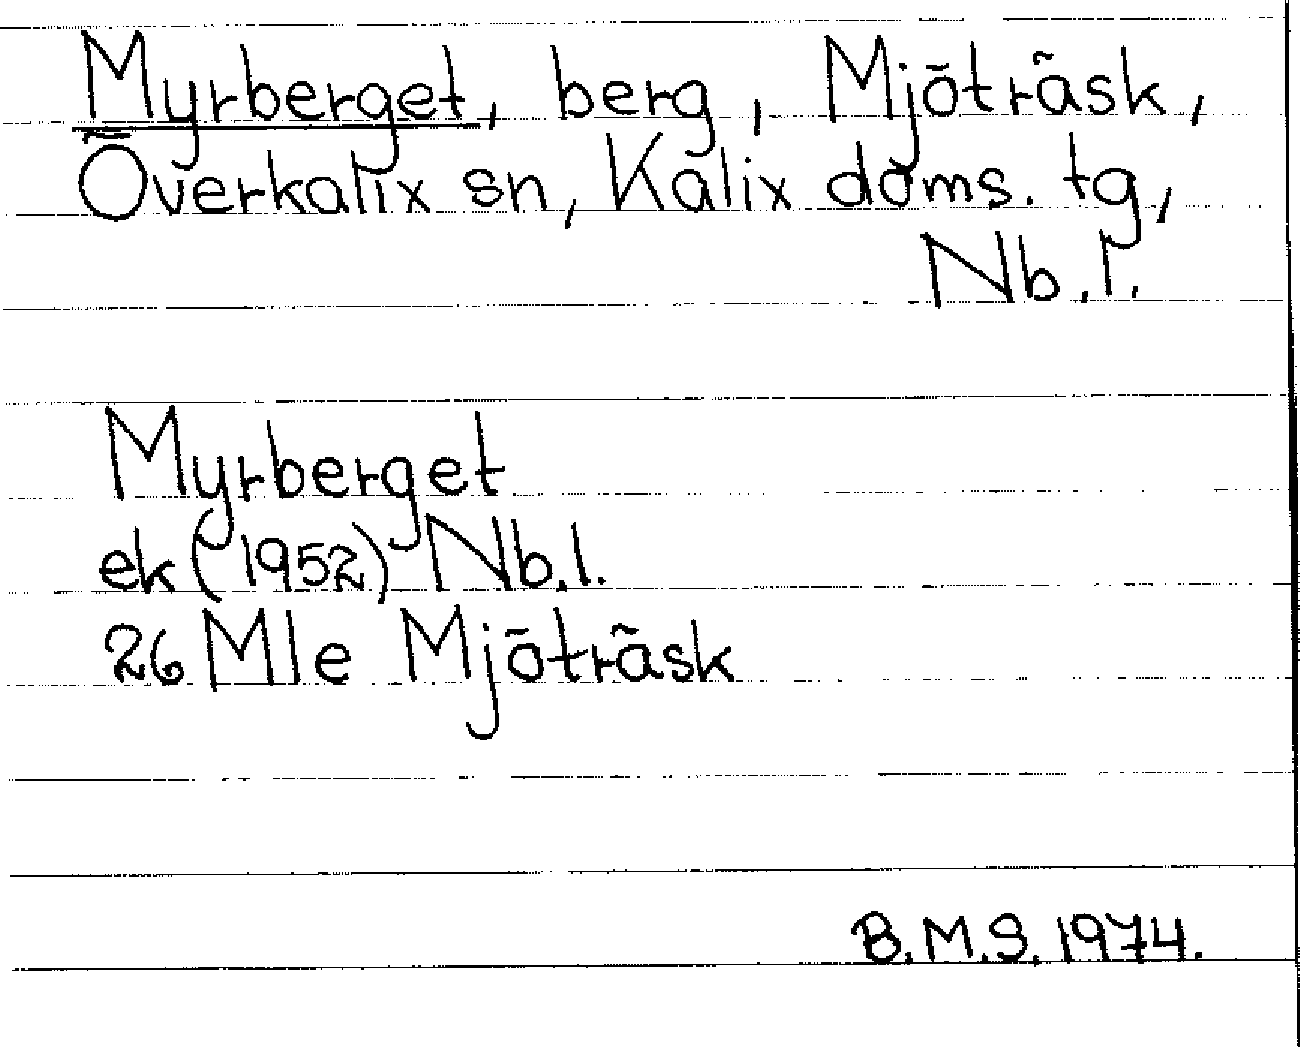 Myrberget, berg, Mjöträsk,
Överkalix sn, Kalix doms. tg,
Nb.l.
Myrberget
ek (1952) Nb.l.
26 Mle Mjöträsk
B.M.S. 1974.